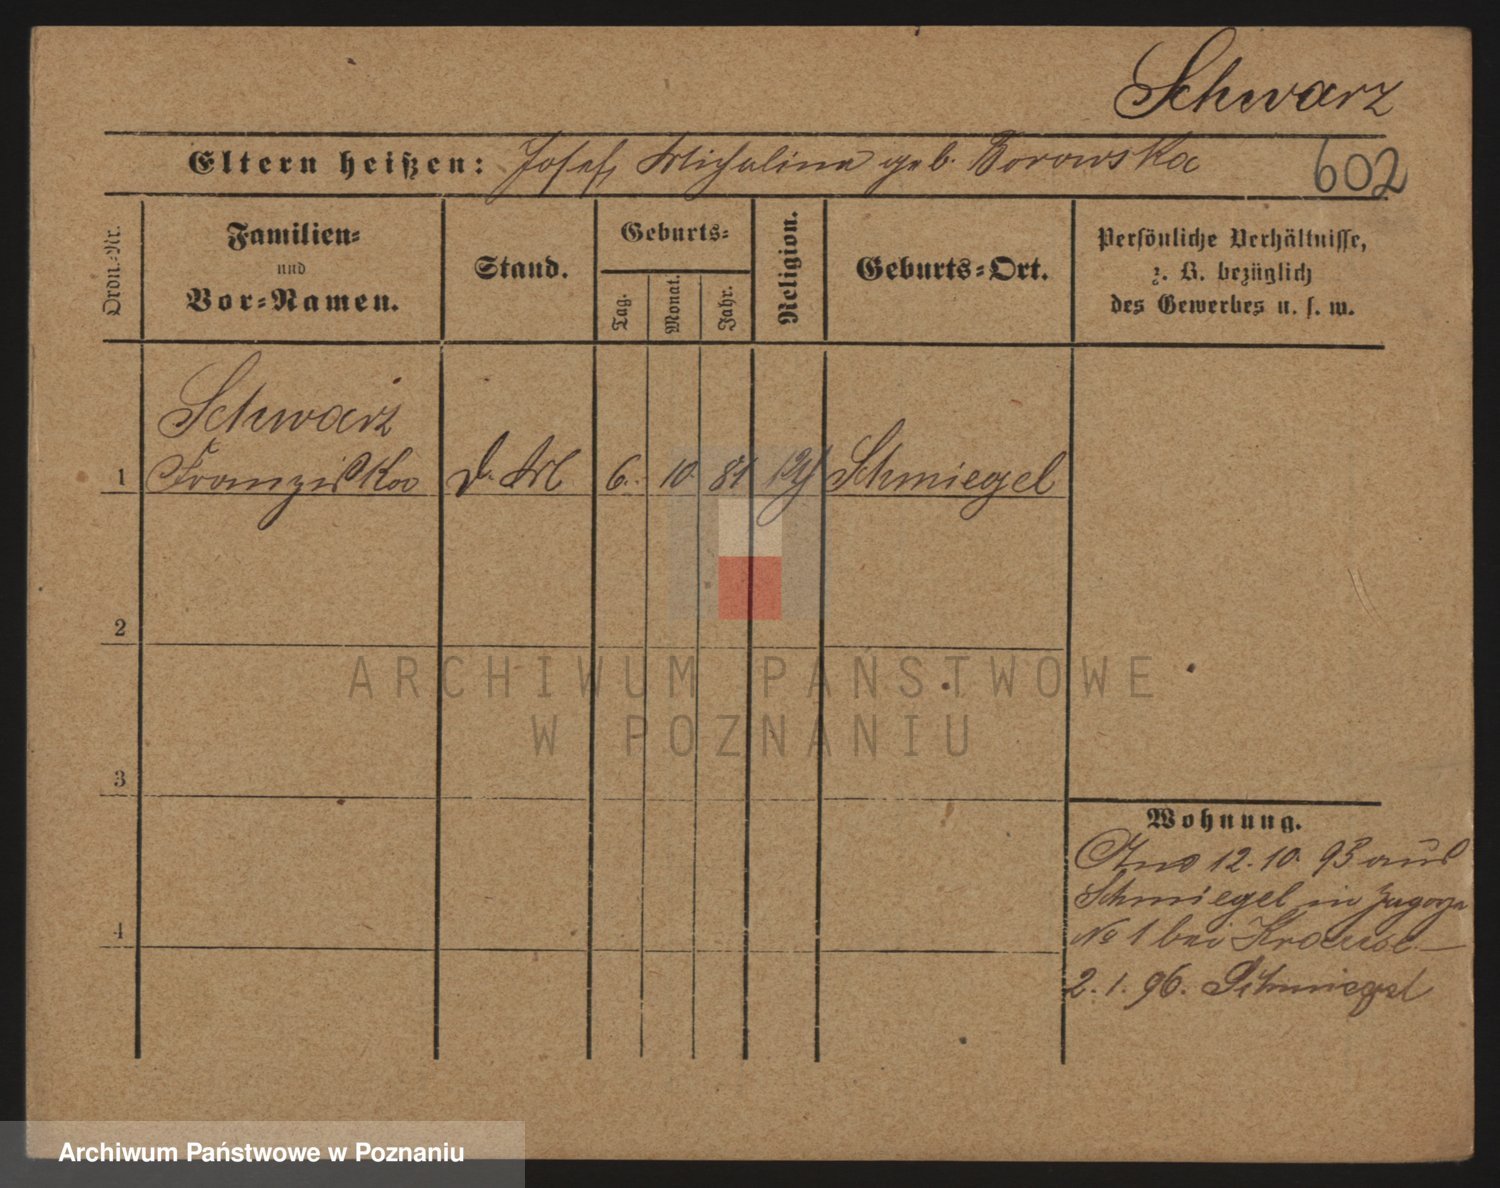 Schwarz
Eltern heißen: Josef, Michalina geb. Borowska
602
Ordn.-Nr.
Familien-
und
Vor-Namen.
Stand.
Geburts-
Tag.
Monat.
Jahr.
Religion.
Geburts-Ort.
Persönliche Verhältnisse,
z. B. bezüglich
des Gewerbes u. s. w.
Schwarz
1 Franziska d. M 6. 10. 81 Schmiegel
2
3
4
Wohnung.
12. 10. 93 aus
Schmiegel in Zagorze
No 1 bei Krause
2. 1. 96. Schmiegel
ARCHIWUM PAŃSTWOWE
W POZNANIU
Archiwum Państwowe w Poznaniu